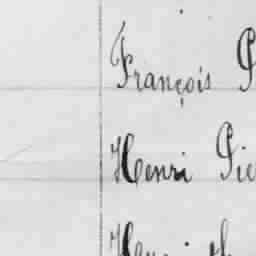 François P
Henri Pie
Henri